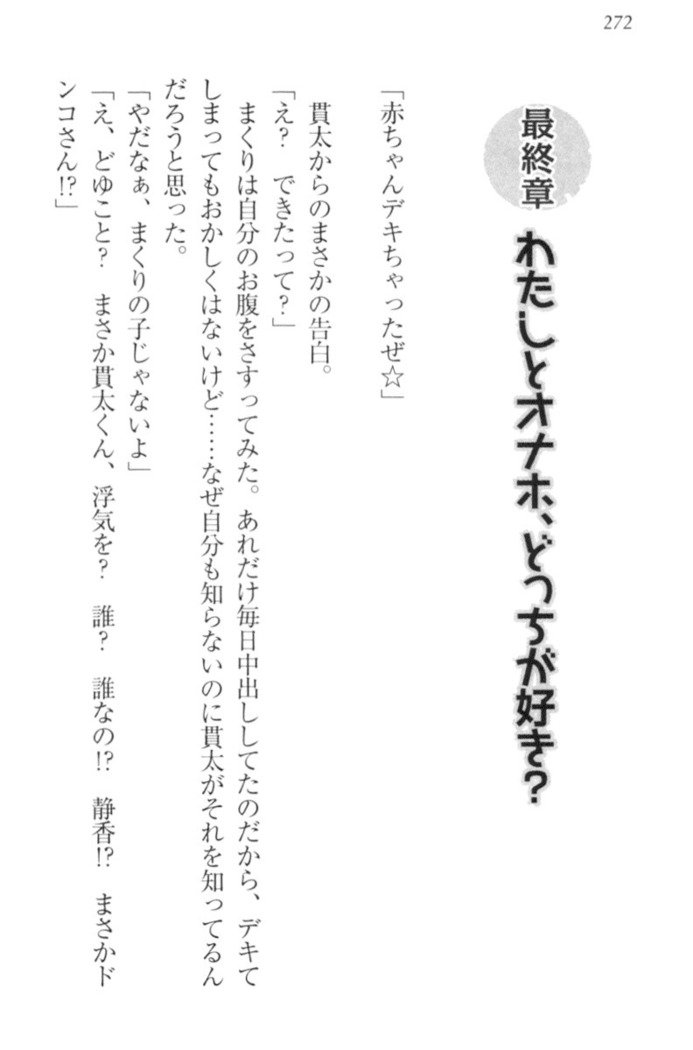 272
最終章
わたしとオナホ、どっちが好き？
「赤ちゃんデキちゃったぜ☆」
貫太からのまさかの告白。
「え？　できたって？」
まくりは自分のお腹をさすってみた。あれだけ毎日中出ししてたのだから、デキて
しまってもおかしくはないけど……なぜ自分も知らないのに貫太がそれを知ってるん
だろうと思った。
「やだなぁ、まくりの子じゃないよ」
「え、どゆこと？　まさか貫太くん、浮気を？　誰？　誰なの!?　静香!?　まさかド
ンコさん!?」